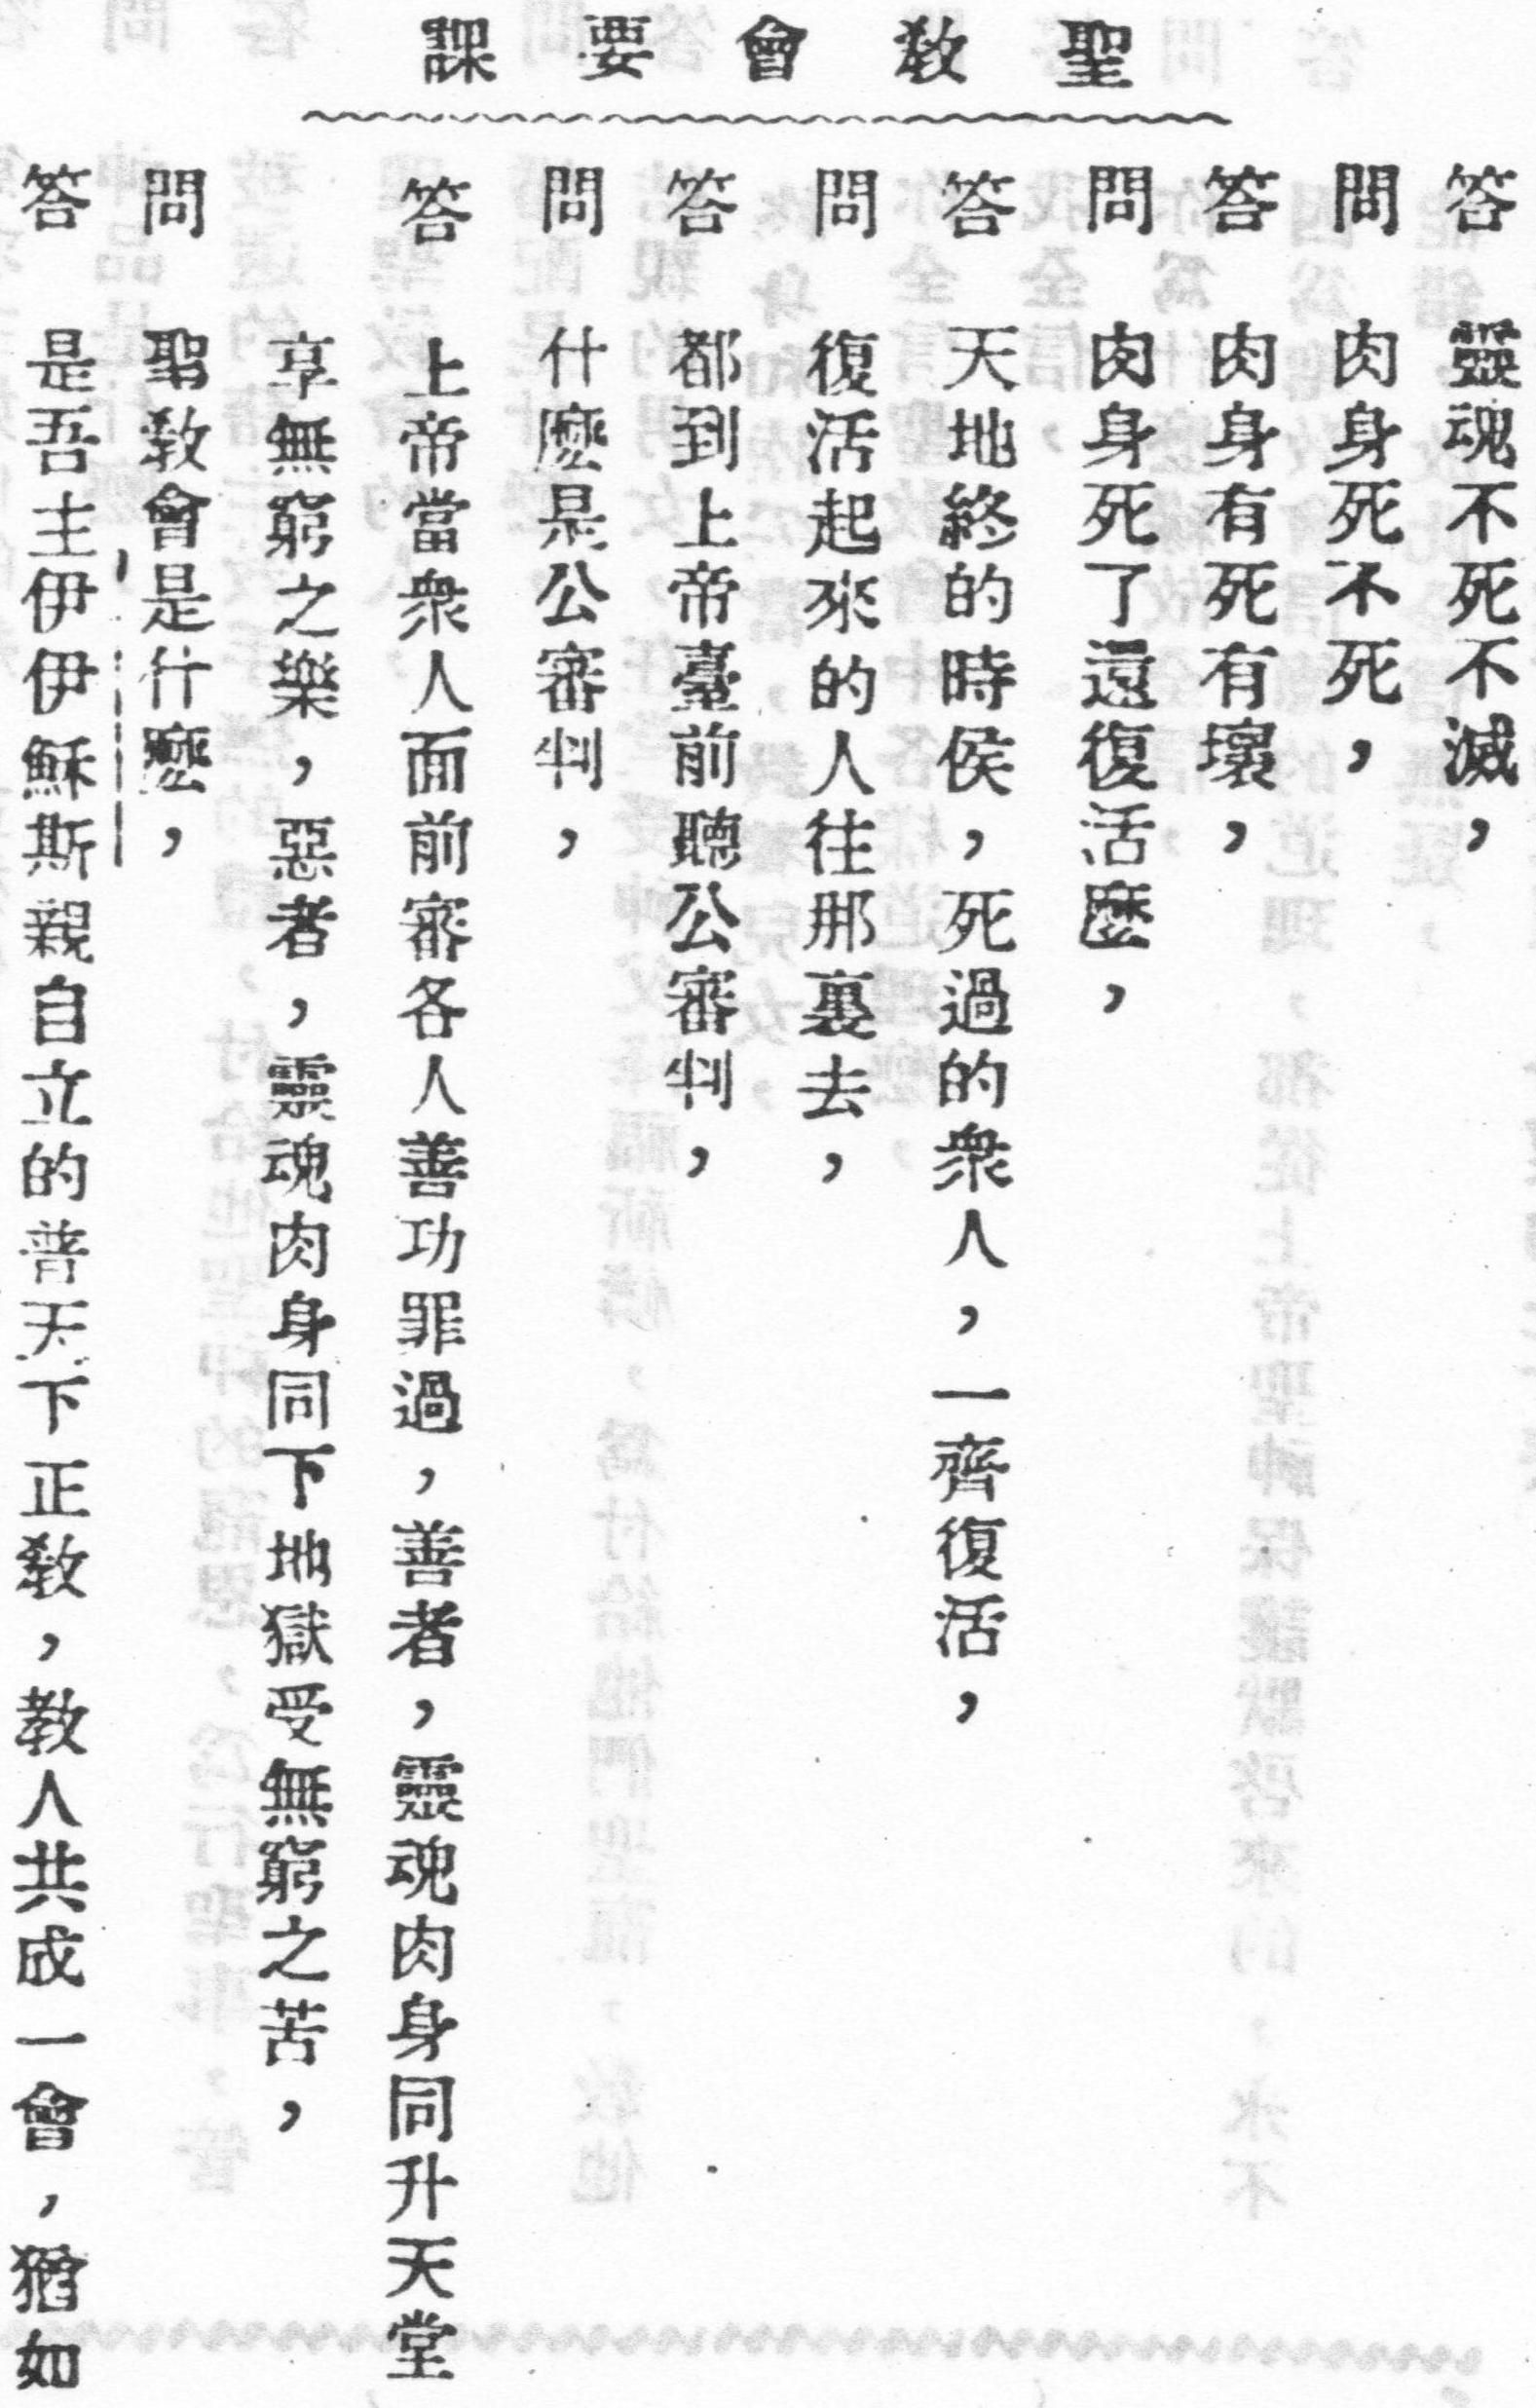 聖敎會要課
答　靈魂不死不滅，
問　肉身死不死，
答　肉身有死有壞，
問　肉身死了還復活麼，
答　天地終的時侯，死過的衆人，一齊復活，
問　復活起來的人往那裏去，
答　都到上帝臺前聽公審判，
問　什麼是公審判，
答　上帝當衆人面前審各人善功罪過，善者，靈魂肉身同升天堂
享無窮之樂，惡者，靈魂肉身同下地獄受無窮之苦，
問　聖敎會是什麼，
答　是吾主伊伊穌斯親自立的普天下正敎，教人共成一會，猶如